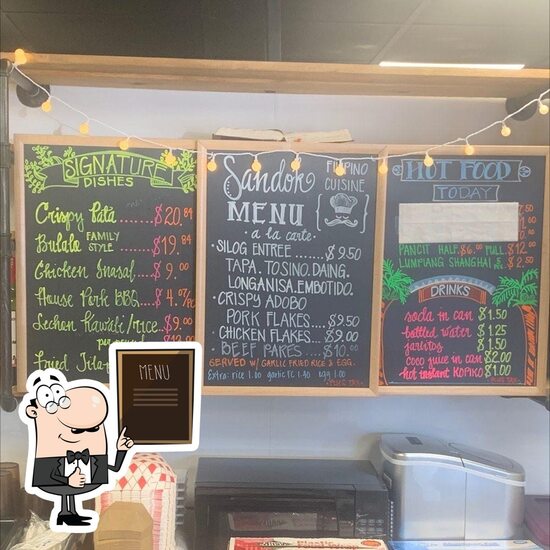 SIGNATURE
DISHES
Crispy Pata ...... $20.84
Bulalo FAMILY STYLE ..... $19.84
Chicken Inasal ..... $9.00
House Pork BBQ.... $4.07/PC
Lechon Kawali/rice... $9.00
Fried
Sandok FILIPINO
CUISINE
MENU
a la carte
• SILOG ENTREE ..... $9.50
TAPA. TOSINO. DAING.
LONGANISA. EMBOTIDO.
• CRISPY ADOBO
PORK FLAKES.... $9.50
CHICKEN FLAKES.. $9.00
BEEF PARES .... $10.00
SERVED W/ GARLIC FRIED RICE & EGG.
Extra: rice 1.00 garlic fr. 1.50 egg 1.00
HOT FOOD
TODAY
PANCIT HALF $6.00 FULL $12.00
LUMPIANG SHANGHAI $2.50
DRINKS
soda in can $1.50
bottled water $1.25
jarritos $1.50
coco juice in can $2.00
hot instant KOPIKO $1.00
PLUS TAX
MENU